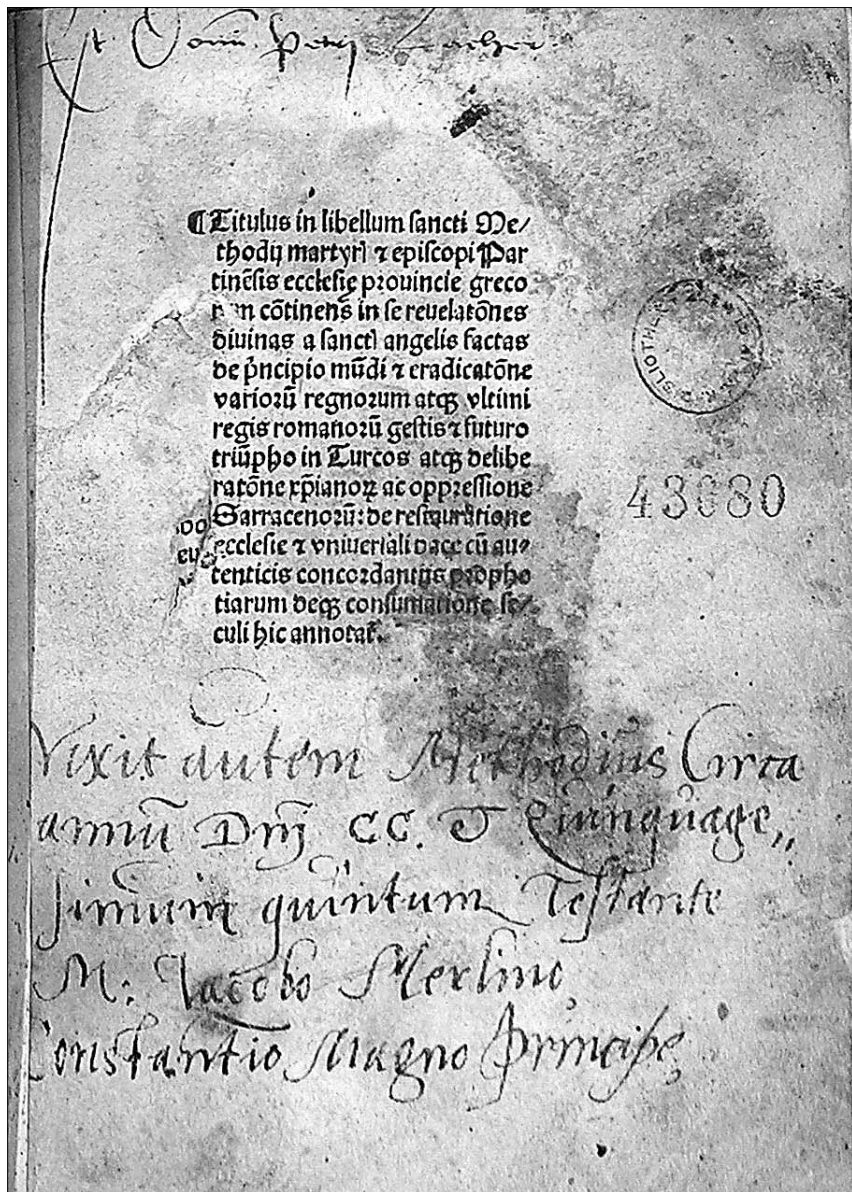 Est Domi. Petri
¶Titulus in libellum sancti Me⸗
thodij martyrꝭ ⁊ episcopi Par
tinēsis ecclesię prouincie greco
rum cōtinens in se reuelatōnes
diuinas a sanctꝭ angelis factas
de p̄ncipio mūdi ⁊ eradicatōne
variorū regnorum atqꝫ vltimi
regis romanorū gestis ⁊ futuro
triūpho in Turcos atqꝫ delibe
ratōne xp̄ianoꝝ ac oppressione
Sarracenorū: de restauratione
ecclesie ⁊ vniuersali pace cū au⸗
tenticis concordantijs prophe
tiarum deqꝫ consumatione se⸗
culi hic annotat̄.
43080
Vixit autem Methodius Circa
annū Dn̄j CC. Et Quinquage„
simum quintum Testante
M: Jacobo Merlino,
Constantio Magno Principe,